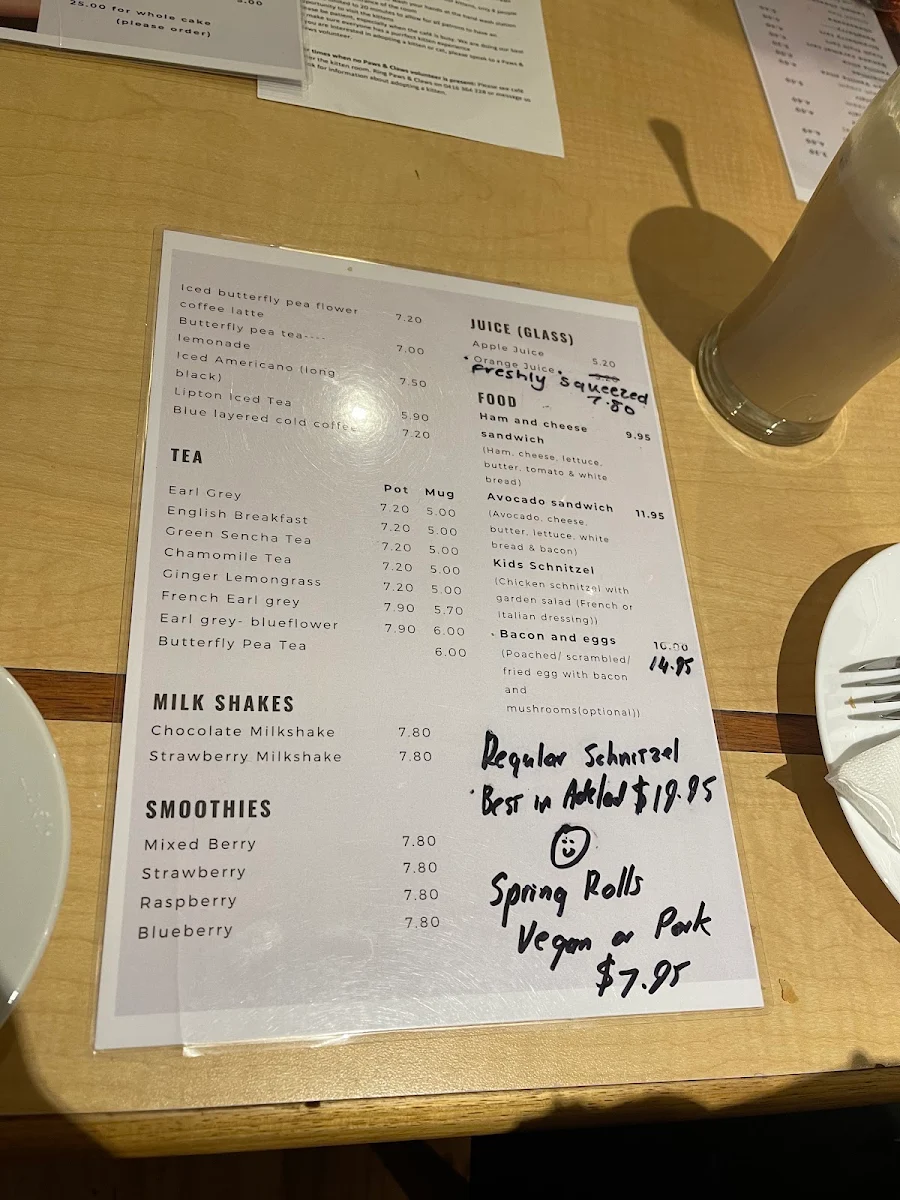 25.00 for whole cake
(please order)
5.00
times when no Paws & Claws volunteer is present: Please see café
for the kitten room. Ring Paws & Claws on
or message us
for information about adopting a kitten.
Iced butterfly pea flower
coffee latte 7.20
Butterfly pea tea----
lemonade 7.00
Iced Americano (long
black) 7.50
Lipton Iced Tea 5.90
Blue layered cold coffee 7.20
TEA
Pot Mug
Earl Grey 7.20 5.00
English Breakfast 7.20 5.00
Green Sencha Tea 7.20 5.00
Chamomile Tea 7.20 5.00
Ginger Lemongrass 7.20 5.00
French Earl grey 7.90 5.70
Earl grey- blueflower 7.90 6.00
Butterfly Pea Tea 6.00
MILK SHAKES
Chocolate Milkshake 7.80
Strawberry Milkshake 7.80
SMOOTHIES
Mixed Berry 7.80
Strawberry 7.80
Raspberry 7.80
Blueberry 7.80
JUICE (GLASS)
Apple Juice 5.20
Orange Juice 5.20
freshly squeezed
7.80
FOOD
Ham and cheese 9.95
sandwich
(Ham, cheese, lettuce,
butter, tomato & white
bread)
Avocado sandwich 11.95
(Avocado, cheese,
butter, lettuce, white
bread & bacon)
Kids Schnitzel
(Chicken schnitzel with
garden salad (French or
italian dressing))
Bacon and eggs 10.00
(Poached/ scrambled/ 14.95
fried egg with bacon
and
mushrooms(optional))
Regular Schnitzel
Best in Adelad $19.95
Spring Rolls
Vegan or Pork
$7.95